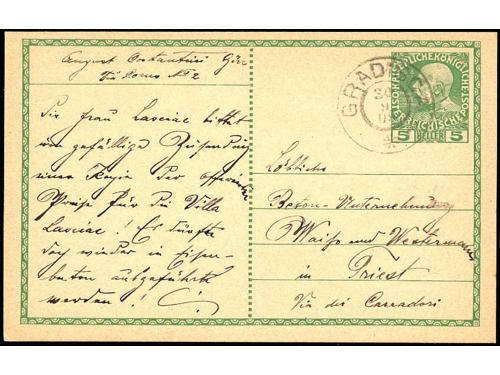 August Costantini Görz
Via Corno No 2
Die Frau Lasciac bittet
um gefällige Zusendung
einer Kopie der offerierten
Preise für die Villa
Lasciac! Es dürfte
doch wieder in Eisen-
beton ausgeführt
werden!
GRADISCA
30
9
KAISERLICHEKÖNIGLICHE
ÖSTERREICHISCHE POST
5 HELLER 5
Löbliche
Beton-Unternehmung
Waiss und Westermann
in Triest
Via dei Carradori